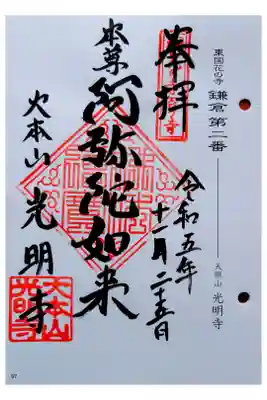 東国花の寺 鎌倉第二番
天照山 光明寺
奉拝
令和五年
十一月二十五日
本尊 阿弥陀如来
大本山 光明寺
大本山
光明寺